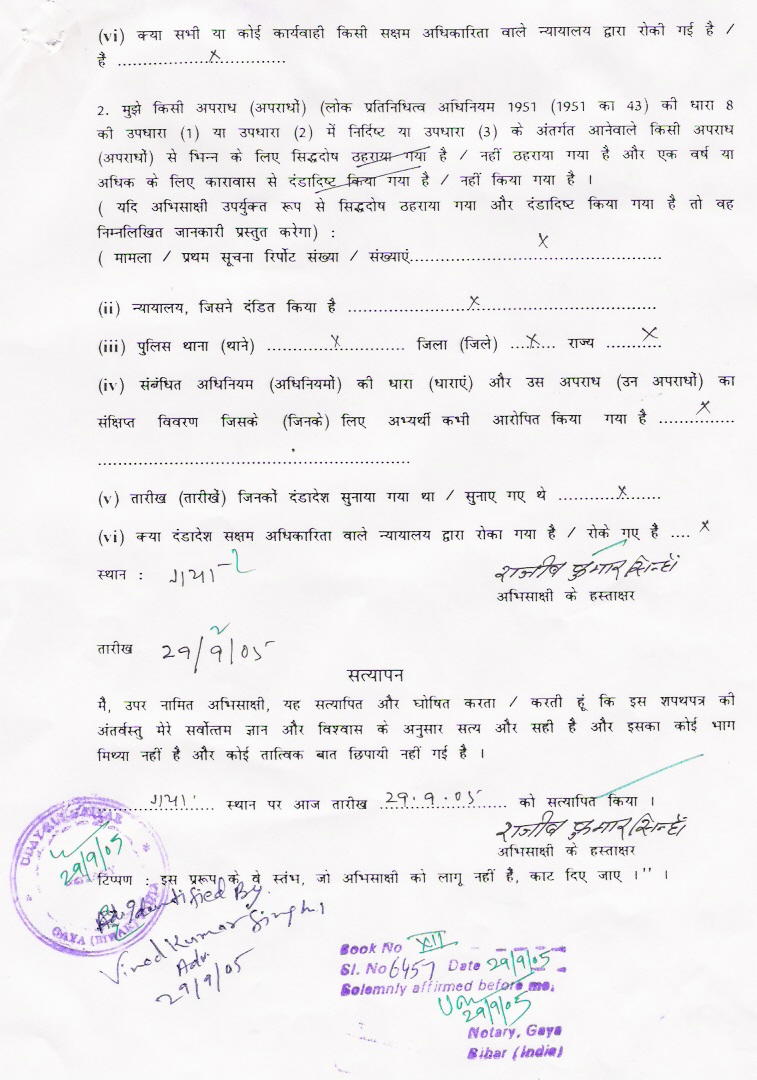 (vi) क्या सभी या कोई कार्यवाही किसी सक्षम अधिकारिता वाले न्यायालय द्वारा रोकी गई है /
है ...............X...............
2. मुझे किसी अपराध (अपराधों) (लोक प्रतिनिधित्व अधिनियम 1951 (1951 का 43) की धारा 8
की उपधारा (1) या उपधारा (2) में निर्दिष्ट या उपधारा (3) के अंतर्गत आनेवाले किसी अपराध
(अपराधों) से भिन्न के लिए सिद्धदोष ठहराया गया है / नहीं ठहराया गया है और एक वर्ष या
अधिक के लिए कारावास से दंडादिष्ट किया गया है / नहीं किया गया है ।
( यदि अभिसाक्षी उपर्युक्त रूप से सिद्धदोष ठहराया गया और दंडादिष्ट किया गया है तो वह
निम्नलिखित जानकारी प्रस्तुत करेगा) :
( मामला / प्रथम सूचना रिर्पोट संख्या / संख्याएं....................X....................
(ii) न्यायालय, जिसने दंडित किया है ....................X....................
(iii) पुलिस थाना (थाने) ...........X........... जिला (जिले) ...X.... राज्य .....X.....
(iv) संबंधित अधिनियम (अधिनियमों) की धारा (धाराएं) और उस अपराध (उन अपराधों) का
संक्षिप्त विवरण जिसके (जिनके) लिए अभ्यर्थी कभी आरोपित किया गया है .......X.......
.......................................................
(v) तारीख (तारीखें) जिनकों दंडादेश सुनाया गया था / सुनाए गए थे ..........X.......
(vi) क्या दंडादेश सक्षम अधिकारिता वाले न्यायालय द्वारा रोका गया है / रोके गए है .... X
स्थान : गया
राजीव कुमार सिन्हाँ
अभिसाक्षी के हस्ताक्षर
तारीख 29/9/05
सत्यापन
मै, उपर नामित अभिसाक्षी, यह सत्यापित और घोषित करता / करती हूं कि इस शपथपत्र की
अंतर्वस्तु मेरे सर्वोत्तम ज्ञान और विश्वास के अनुसार सत्य और सही है और इसका कोई भाग
मिथ्या नहीं है और कोई तात्विक बात छिपायी नहीं गई है ।
.........गया......... स्थान पर आज तारीख 29.9.05 को सत्यापित किया ।
राजीव कुमार सिन्हाँ
अभिसाक्षी के हस्ताक्षर
29/9/05
GAYA (BIHAR)
टिप्पण : इस प्ररूप के वे स्तंभ, जो अभिसाक्षी को लागू नहीं है, काट दिए जाए ।'' ।
Identified By.
Vinod Kumar Singh.1
Adv.
29/9/05
Book No XII
Sl. No 6457 Date 29/9/05
Solemnly affirmed before me.
29/9/05
Notary, Gaya
Bihar (India)